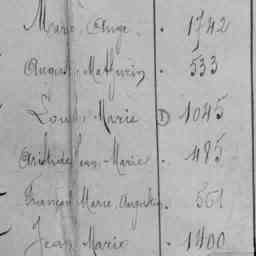 Marie Ange. . 1742
August Mathurin . 533
Louis Marie D 1045
Aristide Jean-Marie . 485
François Marie Augustin . 551
Jean Marie . 1400